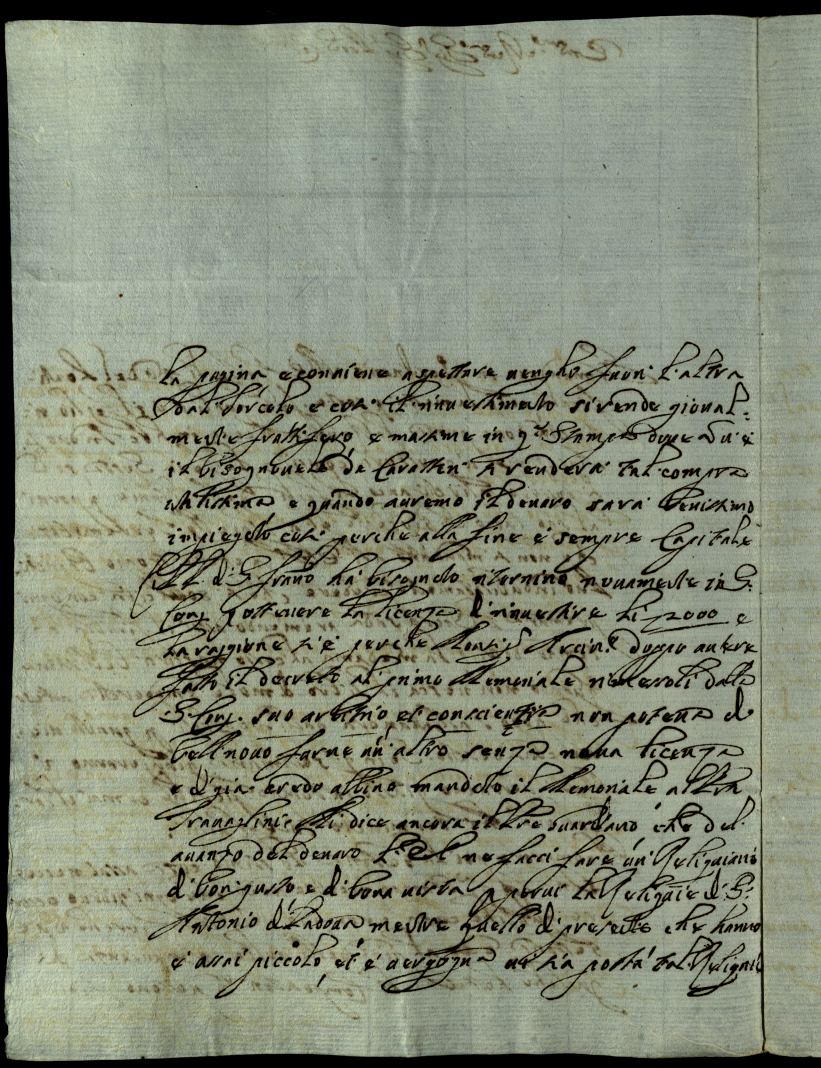 la pagina e conviene aspettare venghi fuori l'altra
dal torcolo e così il rinvestimento si rende gioval=
mente fruttifero e massime in q.ta Stampa dove vi è
il bisognevole de Caratteri si renderà tal compra
utilissima e quando avremo il denaro sarà benissimo
impiegato così perche alla fine è sempre Capitale
Il di S. Frano ha bisognato ritornino novamente in S.
Cong. p ottenere la licenza di rinvestire li 2000 e
la raggione si è perche Monsig.r Arciv.o doppo avere
fatto il decreto al primo Memoriale
S. Cong. suo arbitrio et conscientia non poteva di
bell novo farne un altro senza nova licenza
e di già credo abbino mandato il Memoriale al
Travaglini. Mi dice ancora il Pre Guardiano che del
avanzo del denaro ne facci fare un Reliquiario
di bon gusto e di bona p porvi la Reliquie di S.
Antonio di Padova mentre quello di presente che hanno
è assai piccolo et è vergogna vi sia posta tal Reliquie